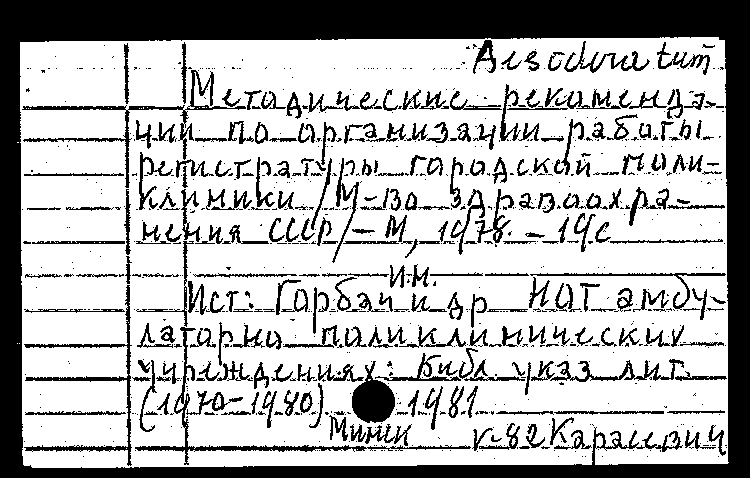 Aesodoratum
Методические рекоменда-
ции по организации работы
регистратуры городской поли-
клиники / М-во здравоохра-
нения СССР/ – М, 1978. – 19с
И.М.
Ист: Горбач и др НОТ амбу-
латорно поликлинических
учреждениях: Библ. указ лит.
(1970-1980) 1981
Минск
V-82 Карасевич